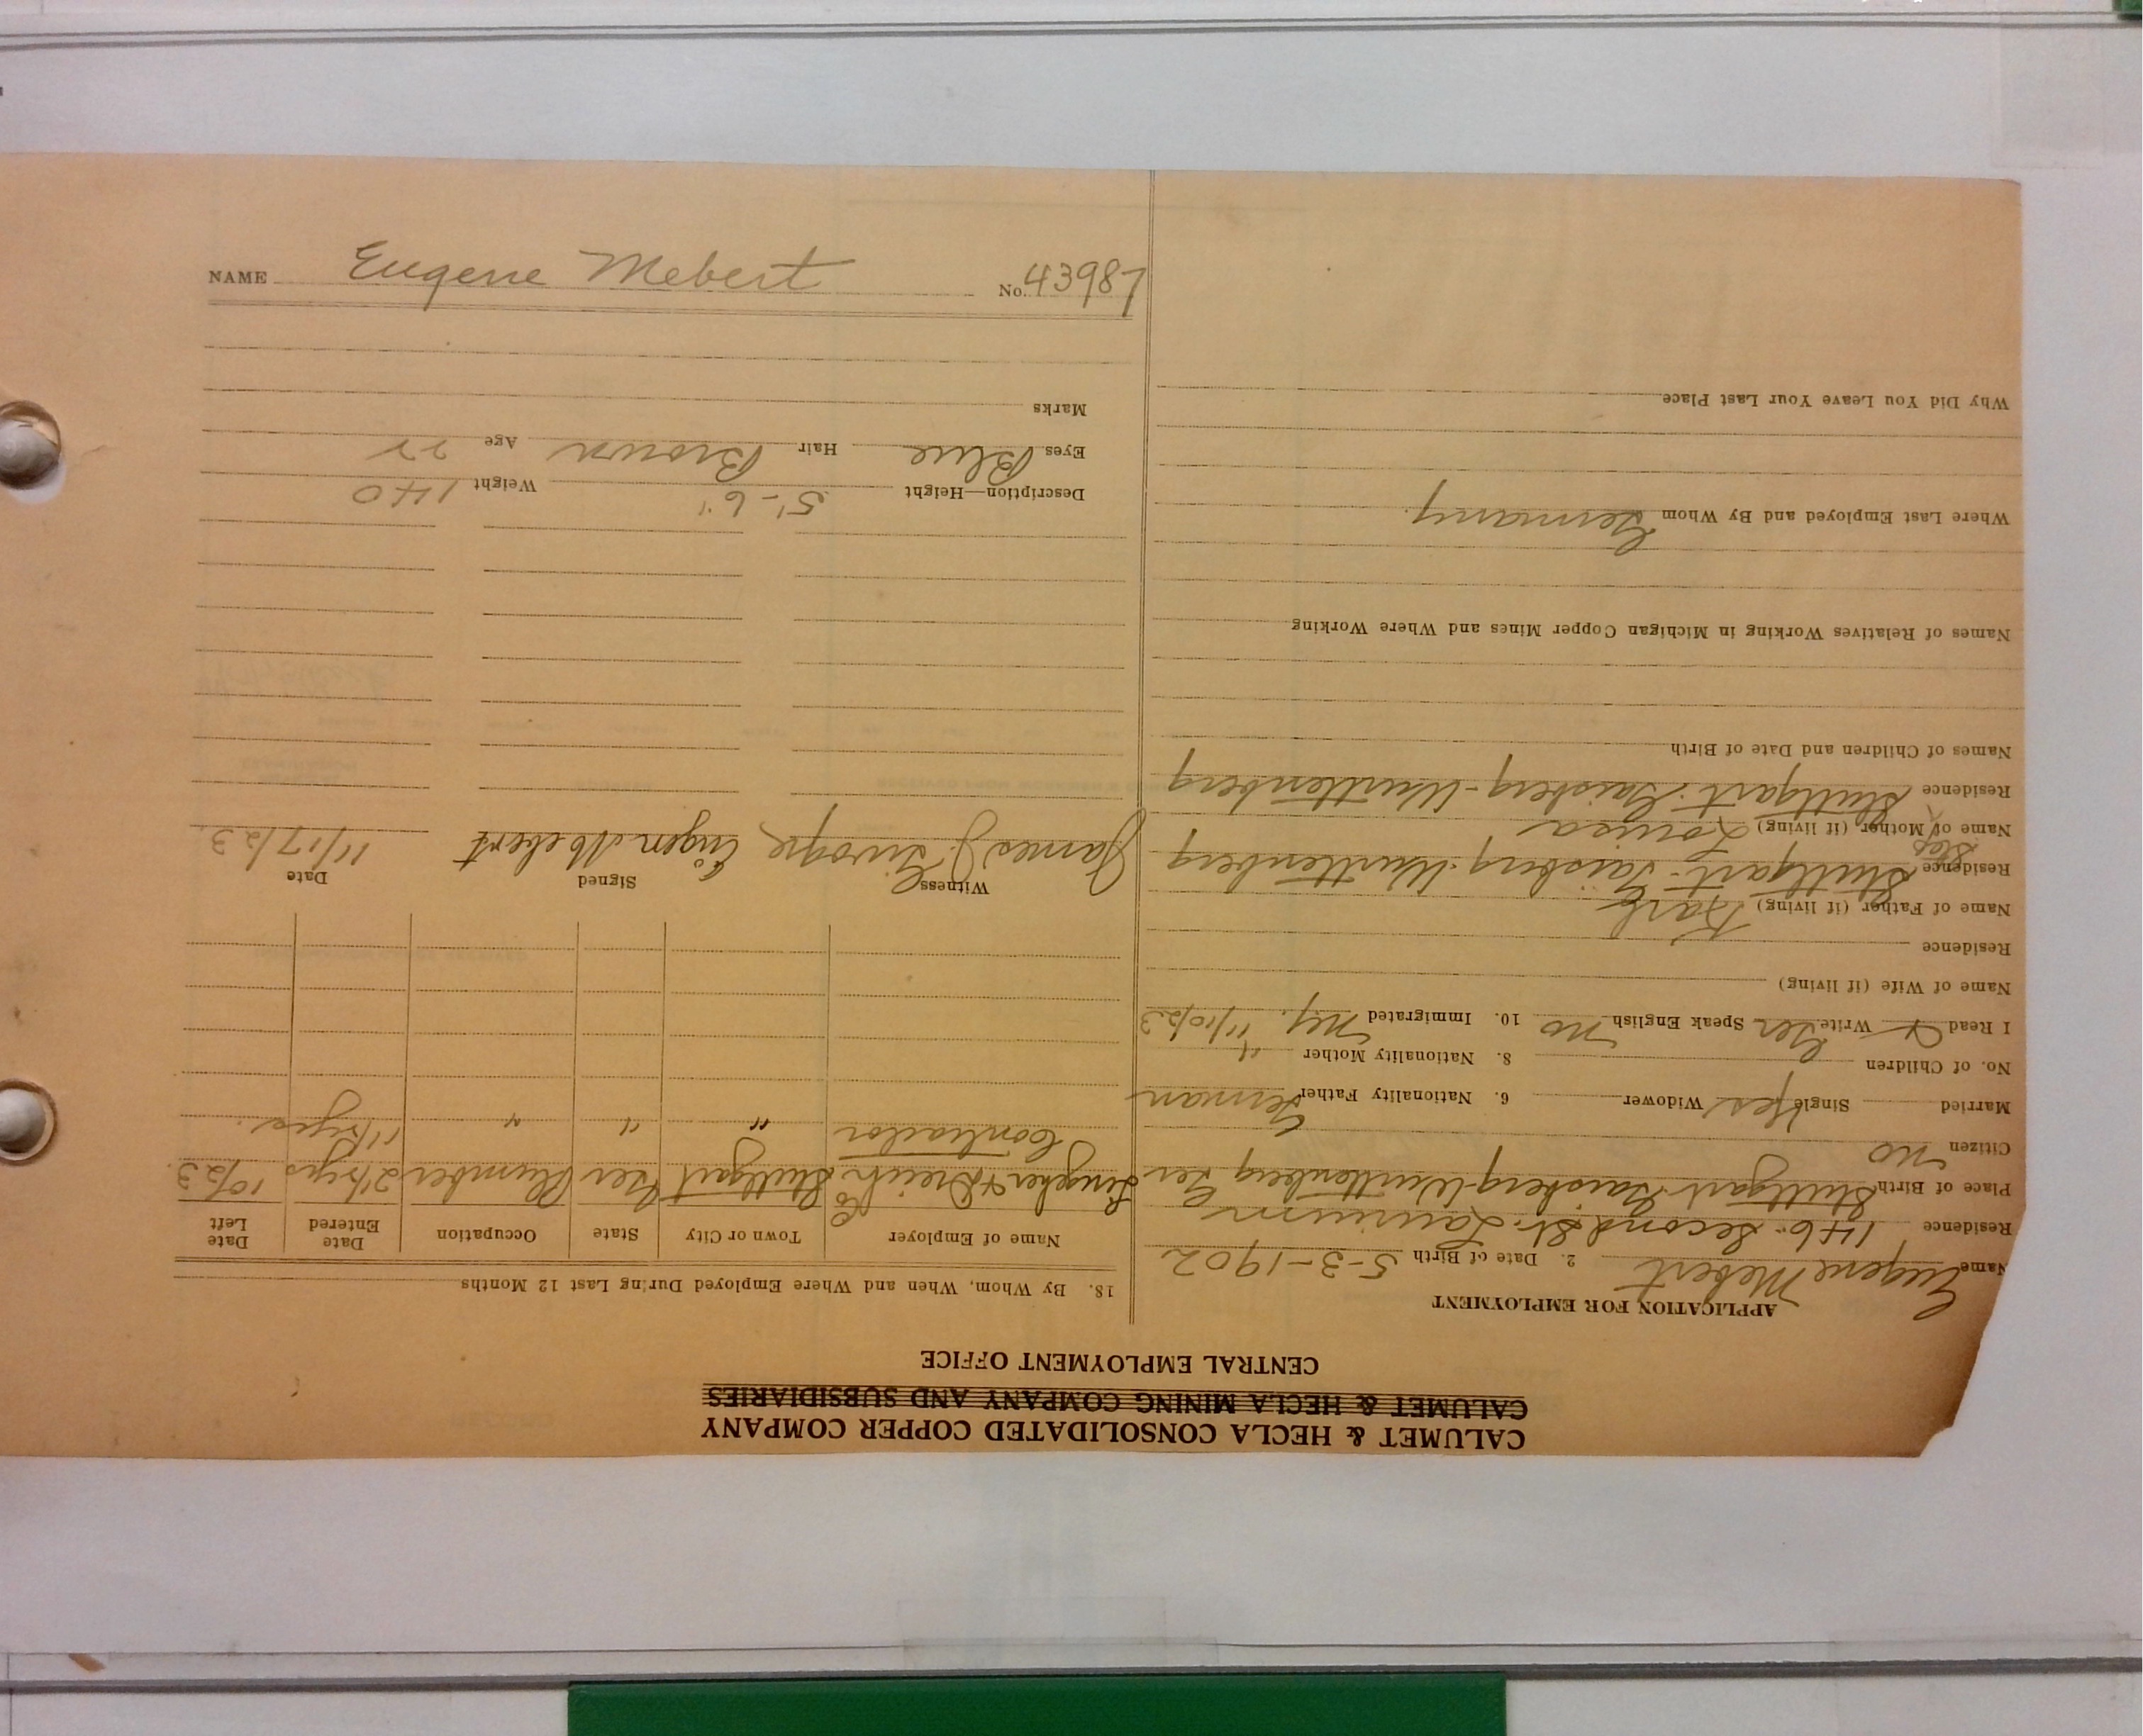 NAME Eugene Mebert No. 43987
CALUMET & HECLA CONSOLIDATED COPPER COMPANY
CALUMET & HECLA MINING COMPANY AND SUBSIDIARIES
CENTRAL EMPLOYMENT OFFICE
APPLICATION FOR EMPLOYMENT
Name Eugene Mebert 2. Date of Birth 5-3-1902
Residence 146. Second St. Laurium
Place of Birth Stuttgart-Gaisberg-Wurttenberg Ger
Citizen no
Married Single Yes Widower 6. Nationality Father German
No. of Children 8. Nationality Mother "
I Read Write Ger Speak English no 10. Immigrated N.Y. 11/10/23
Name of Wife (if living)
Residence
Name of Father (if living) Karl
Residence Stuttgart-Gaisberg-Wurttenberg
Name of Step Mother (if living) Louisa
Residence Stuttgart-Gaisberg-Wurttenberg
Names of Children and Date of Birth
Names of Relatives Working in Michigan Copper Mines and Where Working
Where Last Employed and By Whom Germany.
Why Did You Leave Your Last Place
18. By Whom, When and Where Employed During Last 12 Months
Name of Employer Town or City State Occupation Date Entered Date Left
Stuttgart Ger Plumber 2 1/2 yrs 10/23.
Contractor " " "
Witness Signed Date
James J. Eugen Mebert 11/17/23.
Description—Height 5'-6" Weight 140
Eyes Blue Hair Brown Age 22
Marks